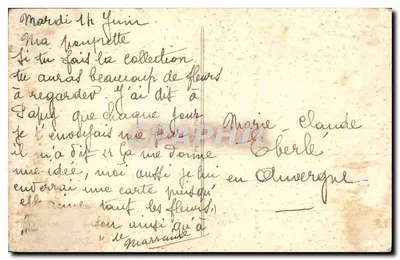 Mardi 14 Juin
Ma poupette
Si tu fais la collection
tu auras beaucoup de fleurs
à regarder. J'ai dit à
Papy que chaque jour
je t'envoyais une
il m'a dit ça me donne
une idée, moi aussi je lui
enverrai une carte puisqu'
elle aime tant les fleurs,
ainsi qu'à
Marie Claude
Eberle
en Auvergne